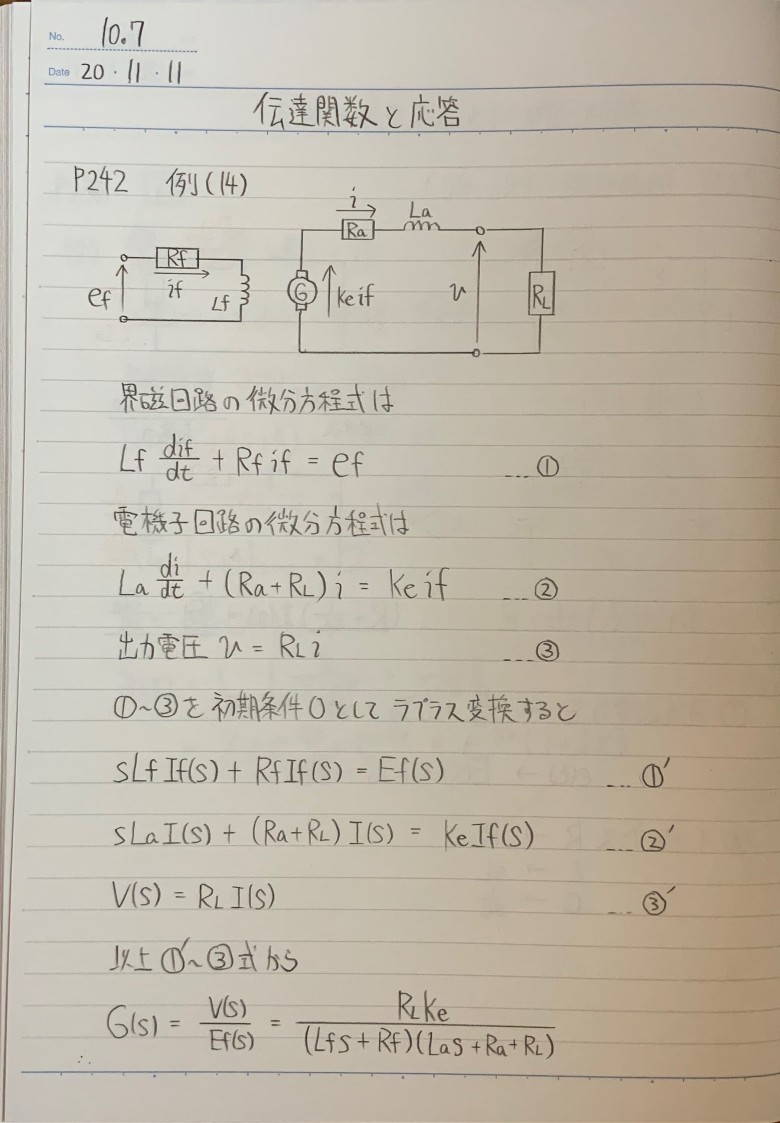 No. 10.7
Date 20・11・11
伝達関数と応答
P242 例(14)
i
Ra
La
Rf
if
ef
Lf
G
Ke if
v
RL
界磁回路の微分方程式は
Lf dif/dt + Rf if = ef ...①
電機子回路の微分方程式は
La di/dt + (Ra+RL) i = Ke if ...②
出力電圧 v = RL i ...③
①~③を初期条件0としてラプラス変換すると
sLf If(s) + Rf If(s) = Ef(s) ...①′
sLa I(s) + (Ra+RL) I(s) = Ke If(s) ...②′
V(s) = RL I(s) ...③′
以上①′~③′式から
G(s) = V(s)/Ef(s) = RL Ke/(Lf s + Rf)(La s + Ra + RL)
∴